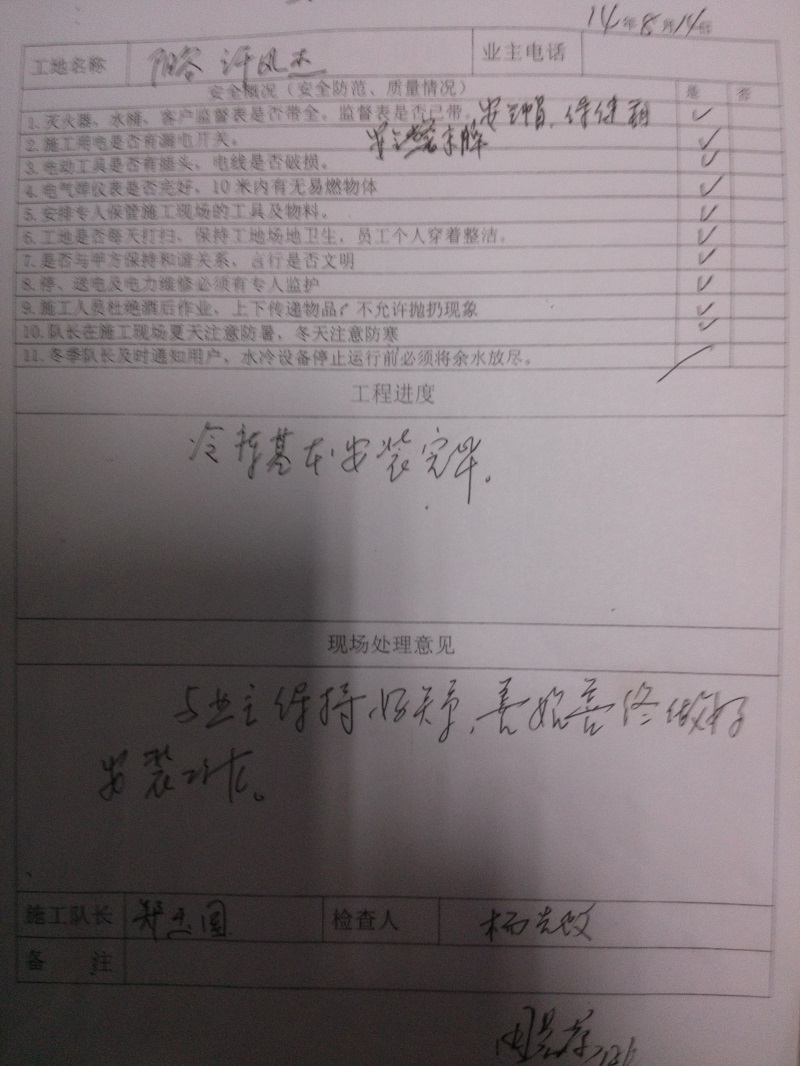 14年8月14日
工地名称 许风杰 业主电话
安全概况（安全防范、质量情况） 是 否
1. 灭火器、水桶、客户监督表是否带全。监督表是否已带。
2. 施工用电是否有漏电开关。
3. 电动工具是否有接头、电线是否破损。
4. 电气焊仪表是否完好、10米内有无易燃物体
5. 安排专人保管施工现场的工具及物料。
6. 工地是否每天打扫、保持工地场地卫生，员工个人穿着整洁。
7. 是否与甲方保持和谐关系、言行是否文明
8. 停、送电及电力维修必须有专人监护
9. 施工人员杜绝酒后作业、上下传递物品，不允许抛扔现象
10. 队长在施工现场夏天注意防暑、冬天注意防寒
11. 冬季队长及时通知用户、水冷设备停止运行前必须将余水放尽。
工程进度
冷库基本安装完毕。
现场处理意见
与业主保持好关系，善始善终做好
安装工作。
施工队长 检查人
备 注